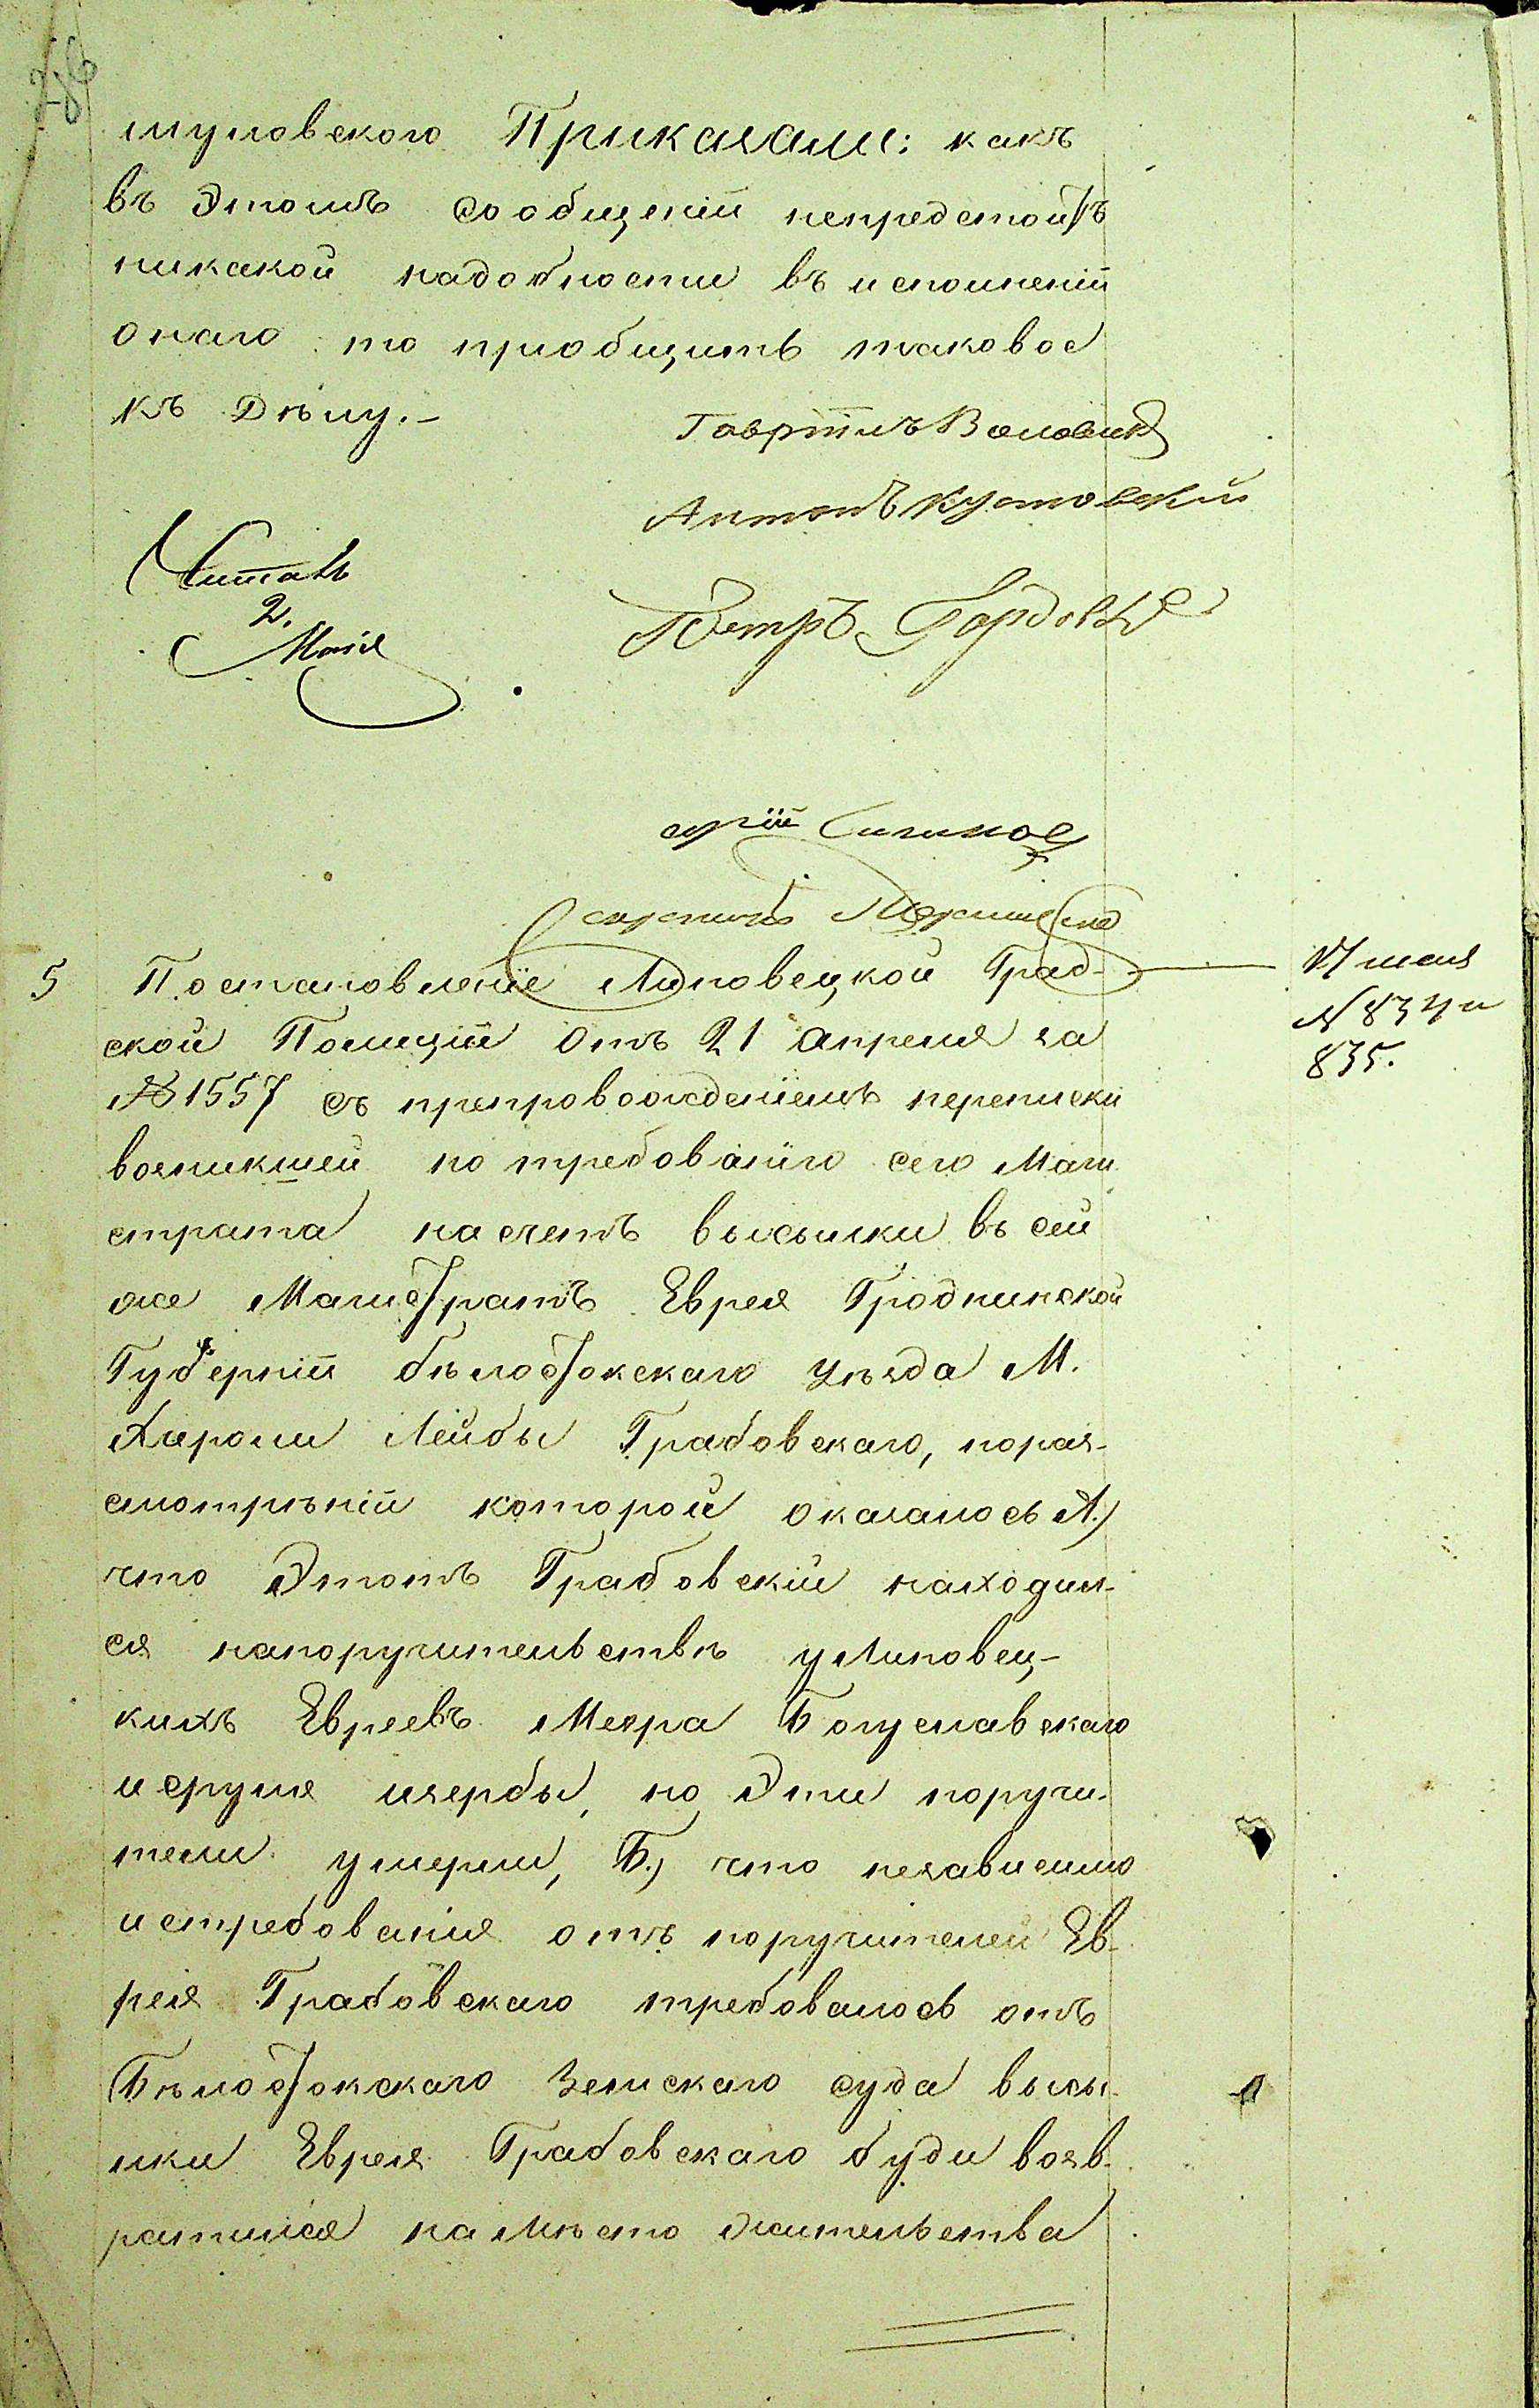 286
муловского Приказали: какъ
въ Этомъ сообщеніи непредстоитъ
никакой надобности въ исполненіи
онаго то приобщить таковое
къ Дѣлу.-
Антонъ Кутовскій
Читалъ
2.
Маія
Петръ
5 Постановленіе Липовецкой Град-
ской Полиціи Отъ 21 Апреля за
№ 1557 съ препровожденіемъ переписки
возникшей по требованію сего Маги
страта на счетъ высылки въ сей
же Магистратъ Еврея Гроднинской
Губерніи бѣлостокскаго уѣзда М.
Хирощи Лейбы Грабовскаго, пораз-
смотрѣніи которой оказалось А.)
что Этотъ Грабовскій находил-
ся напоручительствѣ у Липовец-
кихъ Евреевъ Меера Богуславскаго
и сруля щербы, но Эти поручи-
тели умерли, Б.) что независимо
истребованія отъ поручителей Ев-
рея Грабовскаго требовалось отъ
Бѣлостокскаго Земскаго суда высы-
лки Еврея Грабовскаго буди возв-
ратился на Мѣсто Жительства
17 маія
№ 834 и
835.